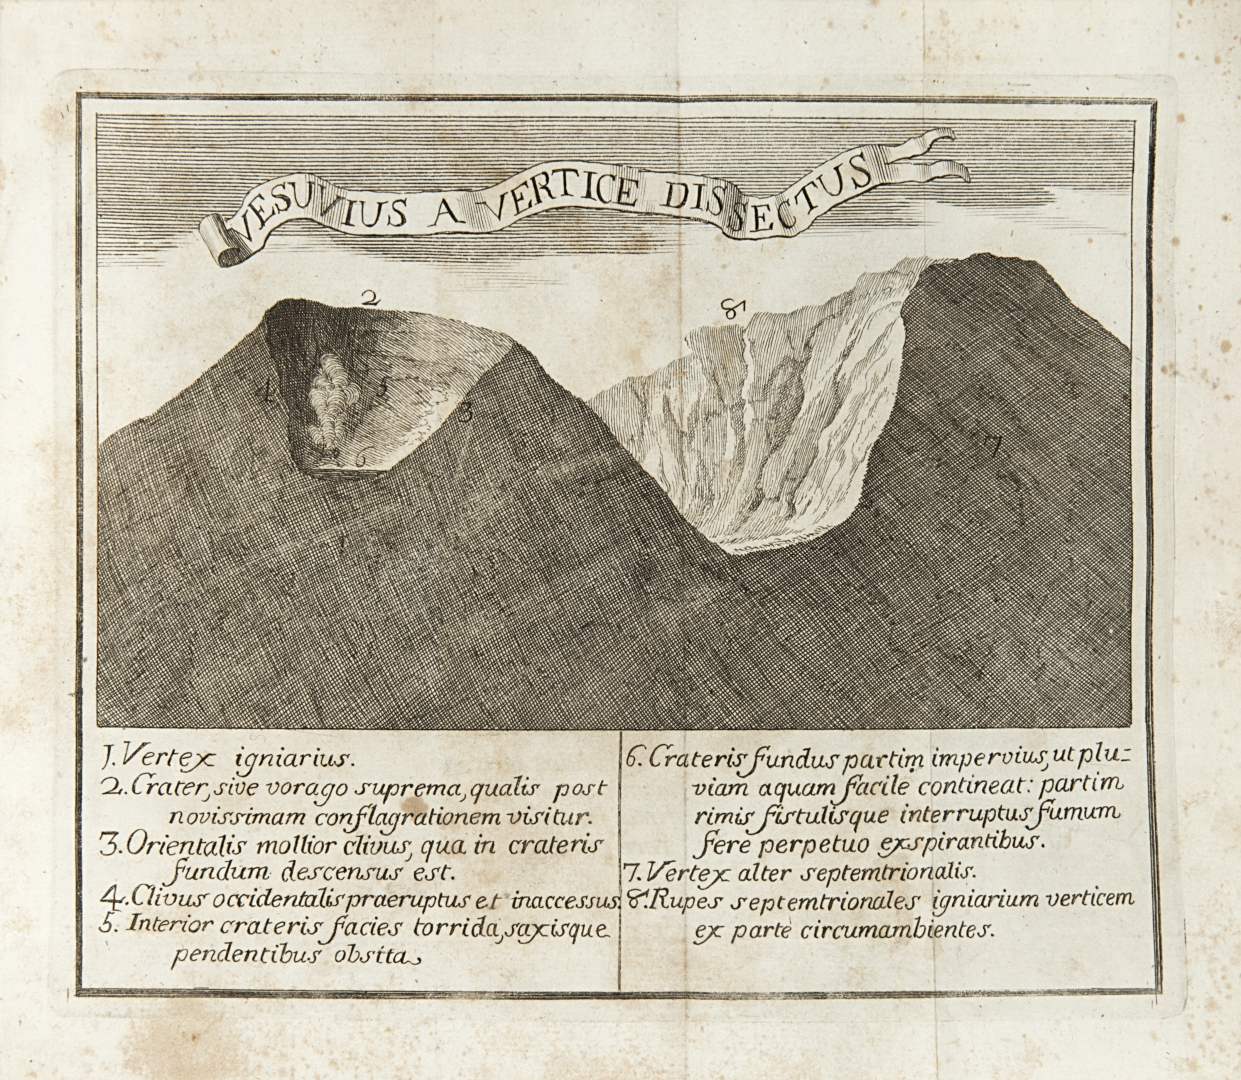 VESUVIUS A VERTICE DISSECTUS
2
8
4
5
3
6
7
1. Vertex igniarius.
2. Crater, sive vorago suprema, qualis post
novissimam conflagrationem visitur.
3. Orientalis mollior clivus, qua in crateris
fundum descensus est.
4. Clivus occidentalis praeruptus et inaccessus.
5. Interior crateris facies torrida, saxisque
pendentibus obsita
6. Crateris fundus partim impervius, ut plu=
viam aquam facile contineat: partim
rimis fistulisque interruptus fumum
fere perpetuo exspirantibus.
7. Vertex alter septemtrionalis.
8. Rupes septemtrionales igniarium verticem
ex parte circumambientes.